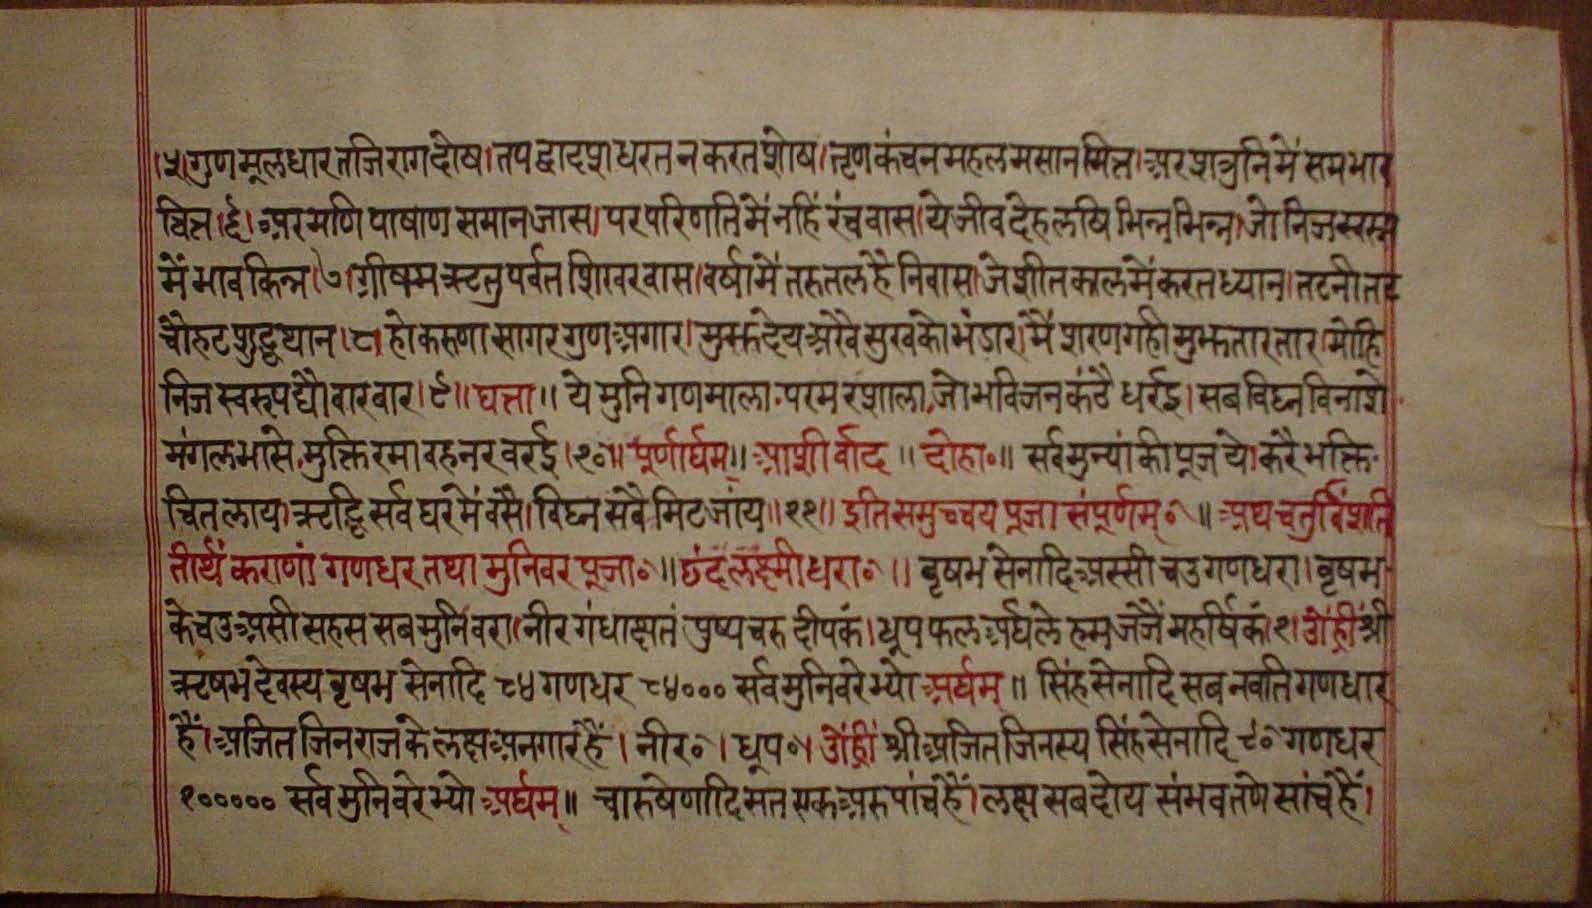 ।५। गुण मूल धार तजि राग दोष। तप द्वादश धरत न करत शोष। तृण कंचन महल मसान मित्त। अर शत्रुनि मे समभाव
चित्त।६। अर मणि पाषाण समान जास। पर परिणति मे नहिं रंच वास। ये जीव देह लषि भिन्न भिन्न। जो निज स्वरूप
में भाव किन्न।७। ग्रीषम ऋतु पर्वत शिखर वास। वर्षा मे तरु तल है निवास। जे शीत काल में करत ध्यान। तटनी तट
चौहट शुद्ध थान।८। हो करुणा सागर गुण अगार। मुझ देय अखै सुख को भंडार। मै शरण गही मुझ तार तार। मोहि
निज स्वरूप द्यौ वार वार।९॥ घत्ता॥ ये मुनि गण माला। परम रशाला। जो भविजन कंठै धरई। सब विघ्न विनाशे
मंगल भासे। मुक्ति रमा वह नर वरई।१०॥ पूर्णार्घम्॥ आशीर्वाद॥ दोहा०॥ सर्व मुन्यां की पूज ये। करै भक्ति
चित लाय। ऋद्धि सर्व घर में वसै। विघ्न सबै मिट जांय॥११॥ इति समुच्चय पूजा संपूर्णम्०॥ अथ चतुर्विंशति
तीर्थंकराणां गणधर तथा मुनिवर पूजा०॥ छंद लक्ष्मीधरा०॥ वृषभ सेनादि अस्सी चउ गणधरा। वृषभ
के चउ अससी सहस सब मुनिवरा। नीर गंधाक्षतं पुष्प चरु दीपकं। धूप फल अर्घ ले हम जजै महर्षिकं।१। ॐ ह्रीं श्री
ऋषभ देवस्य वृषभ सेनादि ८४ गणधर ८४००० सर्व मुनिवरेभ्यो अर्घम्॥ सिंह सेनादि सब नवति गणधार
हैं। अजित जिनराज के लक्ष अनगार हैं। नीर०। धूप०। ॐ ह्रीं श्री अजित जिनस्य सिंह सेनादि ९० गणधर
१००००० सर्व मुनिवरेभ्यो अर्घम्॥ चारुषेणादि सत एक अरु पांच हैं। लक्ष सब दोय संभव तणे सांच हैं।